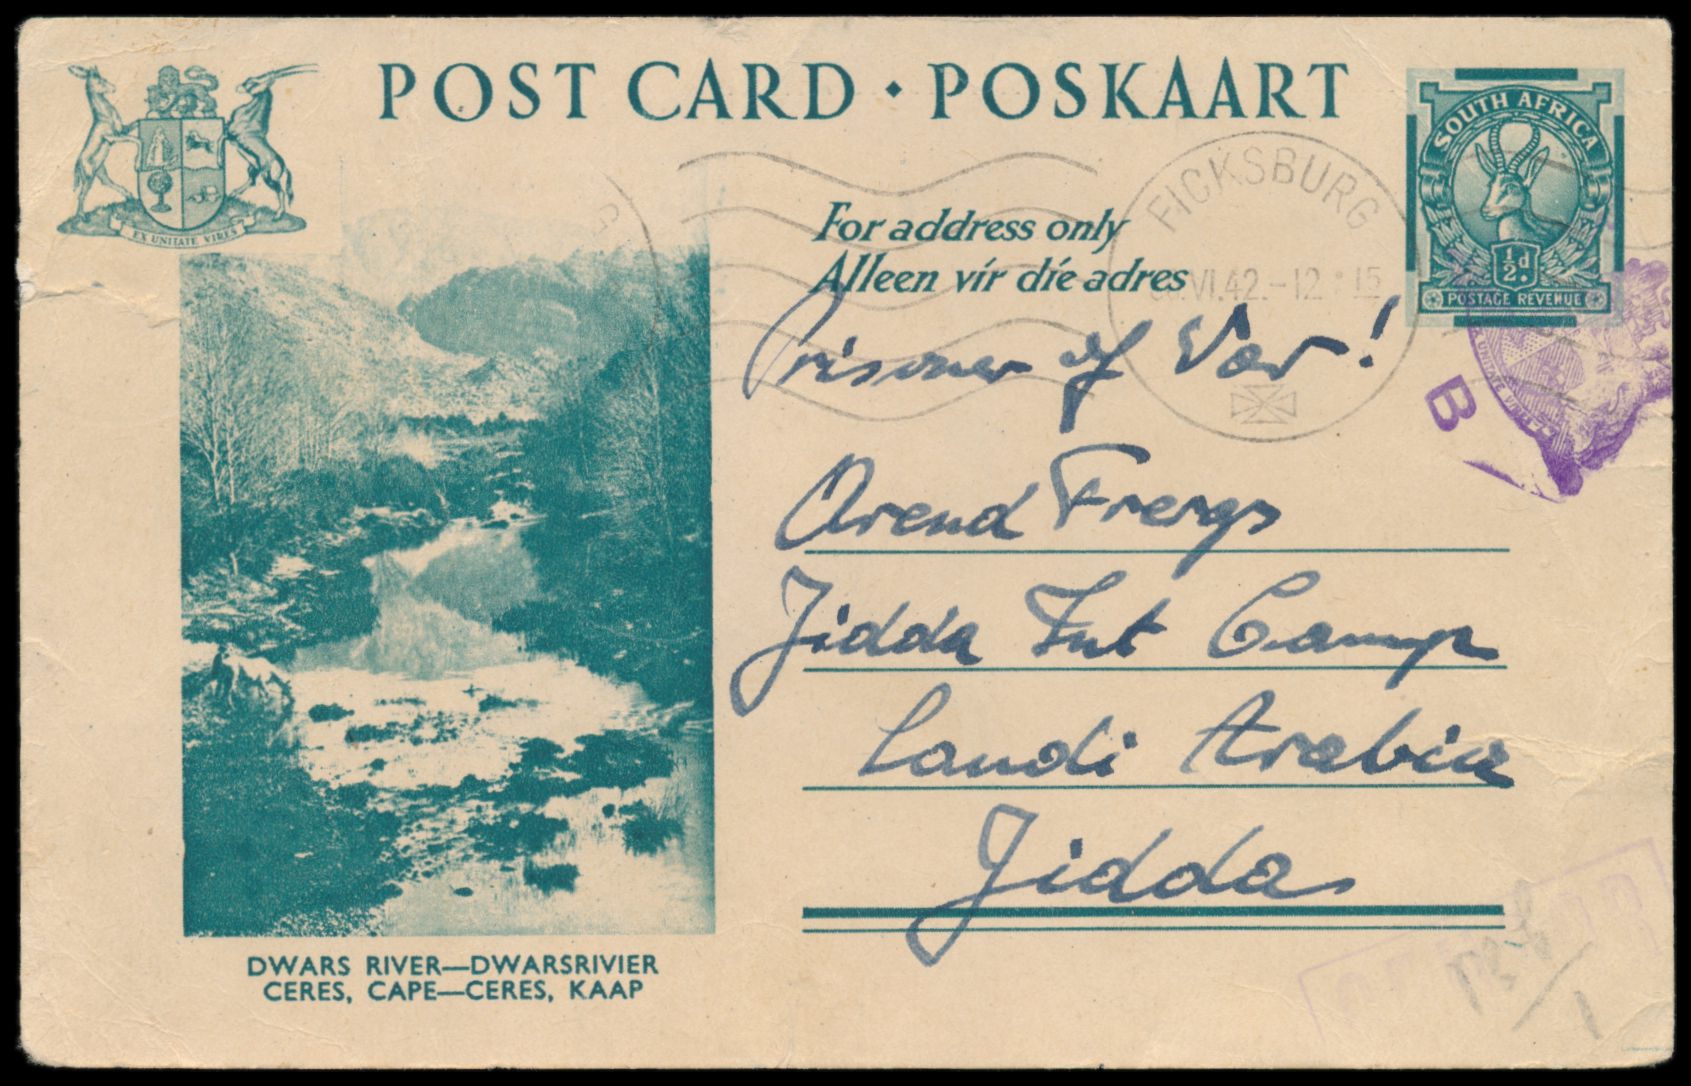 POST CARD · POSKAART
EX UNITATE VIRES
SOUTH AFRICA
½d.
POSTAGE REVENUE
FICKSBURG
VI.42.-12 15
For address only
Alleen vir die adres
Prisoner of War!
B
Arend Frergs
Jidda Int Camp
Saudi Arabia
Jidda
DWARS RIVER—DWARSRIVIER
CERES, CAPE—CERES, KAAP